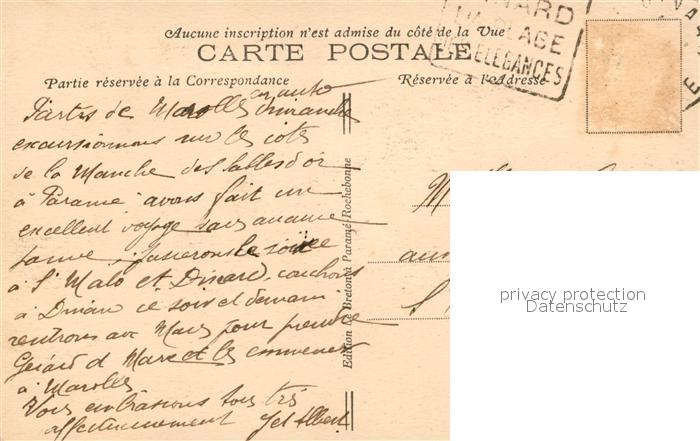 Aucune inscription n'est admise du côté de la Vue
DINARD
LA PLAGE
DES ELEGANCES
CARTE POSTALE
Partie réservée à la Correspondance
Réservée à l'Adresse
en auto
Partis de Marolles dimanche
excursionnons sur les cotes
de la Manche des Sables d'or
à Paramé avons fait un
excellent voyage sans aucune
panne, passerons la soirée
à St Malo et Dinard, couchons
à Dinan ce soir et demain
rentrons aux Mans pour prendre
Gérard et les emmener
à Marolles
Vous embrassons tous très
affectueusement Albert
Edition Le Breton à Paramé-Rochebonne
privacy protection
Datenschutz